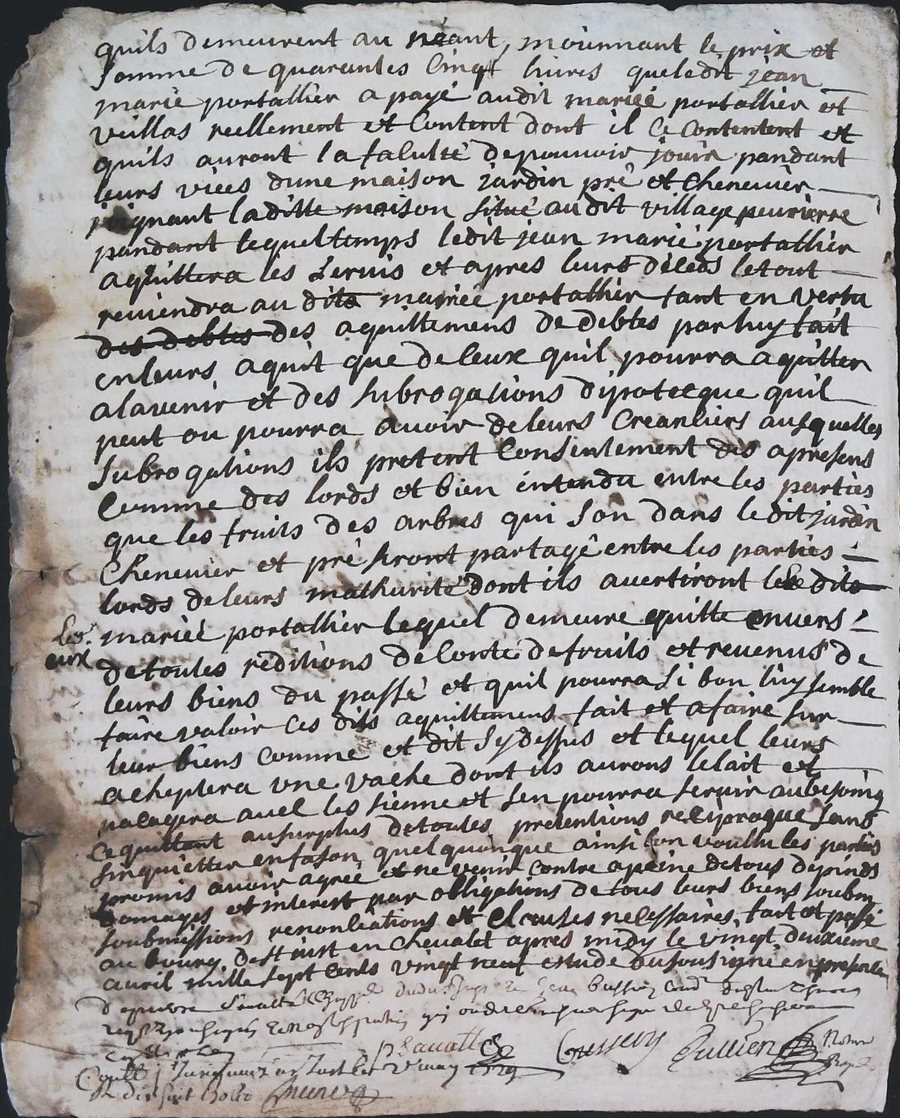 quils demeurent au néant, moiennant le prix et
somme de quarantes cinqt livres queledit jean
marie portallier a payé audit mariée portallier et
veillas reellement et content dont il ce contentent et
quils auront la faculté de pouvoir jouir pandant
leurs viées dune maison jardin pré et chenevier
joignant laditte maison situé audit village peurierre
pandant lequel temps ledit jean marie portallier
aquittera les servis et apres leurs décéds letout
reviendra au dits mariée portallier tant en vertu
des debtes des aquittemens de debtes par luy fait
enleurs aquit que de ceux quil pourra aquitter
alavenir et des subrogations dipotecque quil
peut ou pourra avoir de leurs creanciers ausquelles
subrogations ils pretent consentement des apresens
comme des lords et bien intendu entre les parties
que les fruits des arbres qui son dans ledit jardin
chenevier et pré seront partagé entre les parties
lords de leurs mathurité dont ils avertiront le dits
mariée portallier lequel demeure quitte envers
Les
eux
detoutes réditions de conte defruits et revenus de
leurs biens du passé et quil pourra si bon luy semble
faire valoir ces dits aquittemens fait et afaire sur
leur biens comme et dit sydessus et lequel leurs
acheptera une vache dont ils aurons lelait et
pacagera avec les sienne et sen pourra servir aubesoing
ce quittant ausurplus detoutes pretentions reciproque sans
sinquietter enfason quelquonque ainsi lon voullu les parties
promis avoir agreé et ne venir contre apeine detous depends
domages et interest par obligations de tous leurs biens
soubmissions renonciations et clauses necessaires, fait et passé
au bourg destinst en chevalet apres midy le vingt deuxieme
avril mille sept cents vingt neuf estude dusousigné en presence
Cussery Jullien